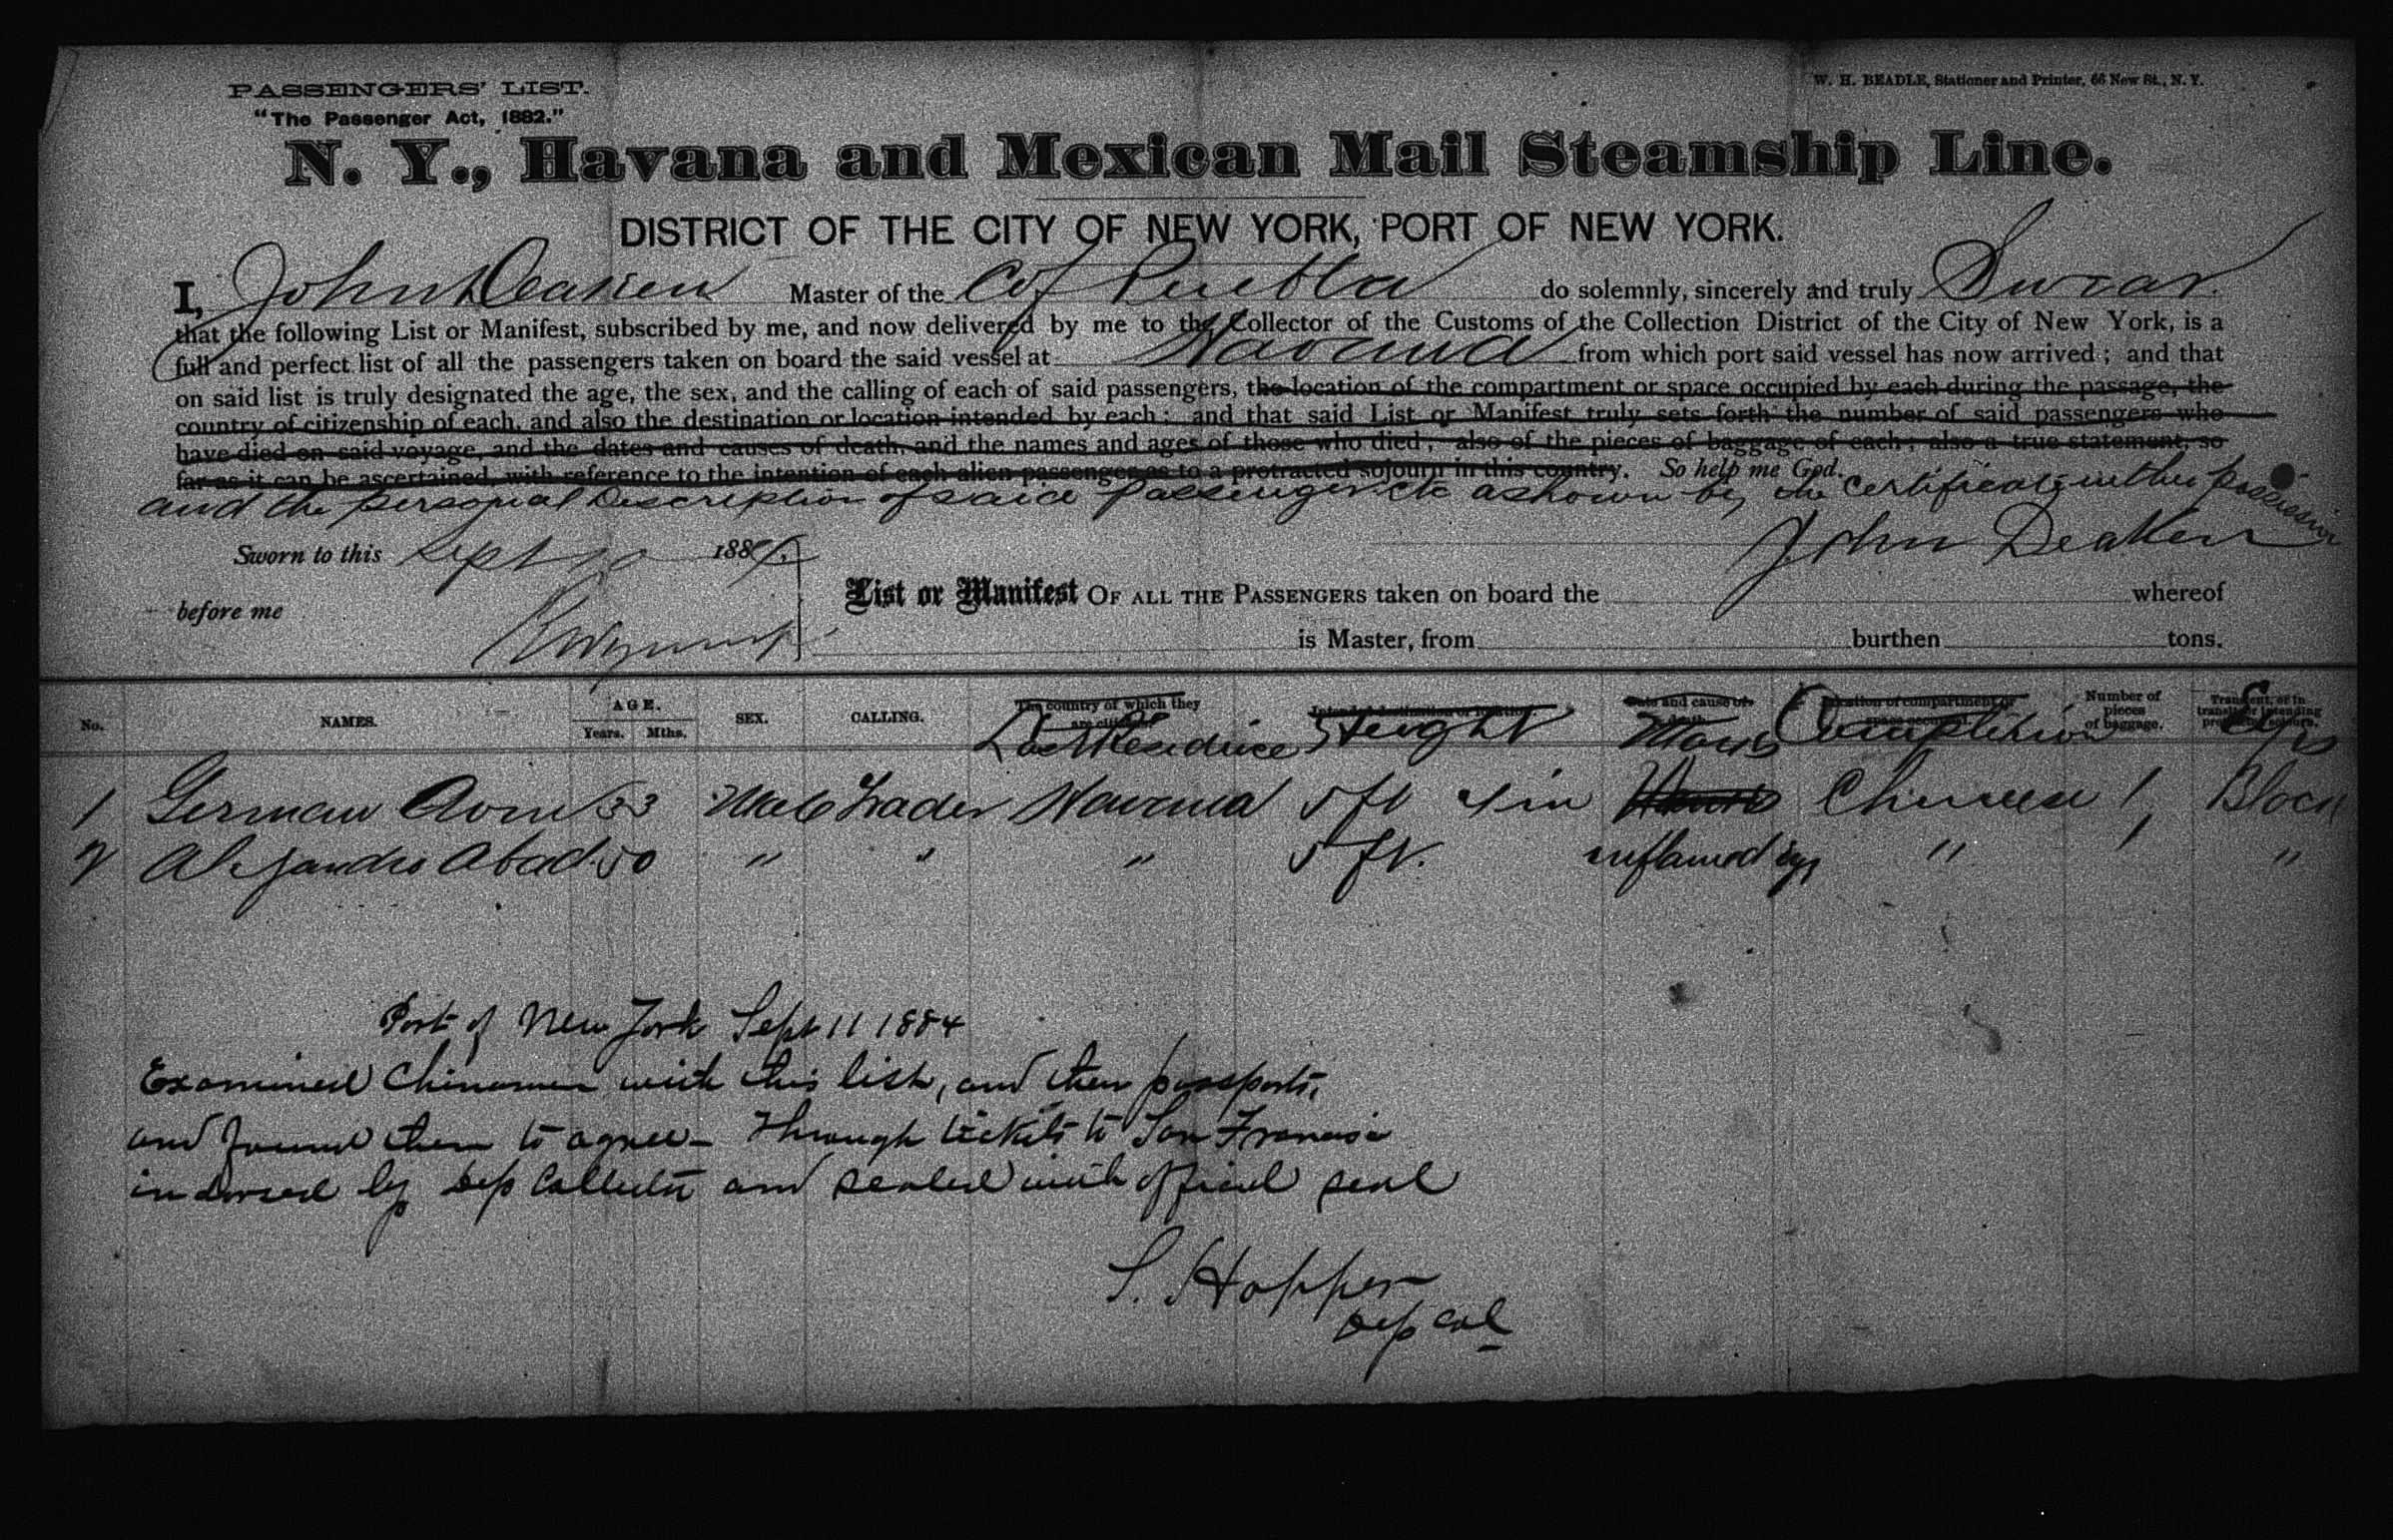 PASSENGERS' LIST.
W. H. BEADLE, Stationer and Printer, 66 New St., N. Y.
"The Passenger Act, 1882."
N. Y., Havana and Mexican Mail Steamship Line.
DISTRICT OF THE CITY OF NEW YORK, PORT OF NEW YORK.
I, John Deaken Master of the C of Puebla do solemnly, sincerely and truly Swear
that the following List or Manifest, subscribed by me, and now delivered by me to the Collector of the Customs of the Collection District of the City of New York, is a
full and perfect list of all the passengers taken on board the said vessel at Havana from which port said vessel has now arrived; and that
on said list is truly designated the age, the sex, and the calling of each of said passengers, the location of the compartment or space occupied by each during the passage, the
country of citizenship of each, and also the destination or location intended by each; and that said List or Manifest truly sets forth the number of said passengers who
have died on said voyage, and the dates and causes of death, and the names and ages of those who died; also of the pieces of baggage of each; also a true statement, so
far as it can be ascertained, with reference to the intention of each alien passenger as to a protracted sojourn in this country. So help me God.
and the personal Description of said passengers etc as shown by the certificates in their possession
Sworn to this Sept 10 1884 John Deaken
before me
List or Manifest OF ALL THE PASSENGERS taken on board the whereof
is Master, from burthen tons.
No. NAMES. AGE. Years. Mths. SEX. CALLING. The country of which they are citizens Intended destination or location Date and cause of death Location of compartment or space occupied Number of pieces of baggage. Transient, or in transit, or intending protracted sojourn.
Last Residence Height Marks Complexion Eyes
1 German 33 Male Trader Havana 5 ft 4 in Chinese 1 Black
2 Alejandro Abad 50 " " " 5 ft. inflamed eyes " 1 "
Port of New York Sept 11 1884
Examined Chinamen with this list, and their passports,
and found them to agree - Through tickets to San Francisco
indorsed by Dep Collector and sealed with official seal
S. Hopper
Dep Col